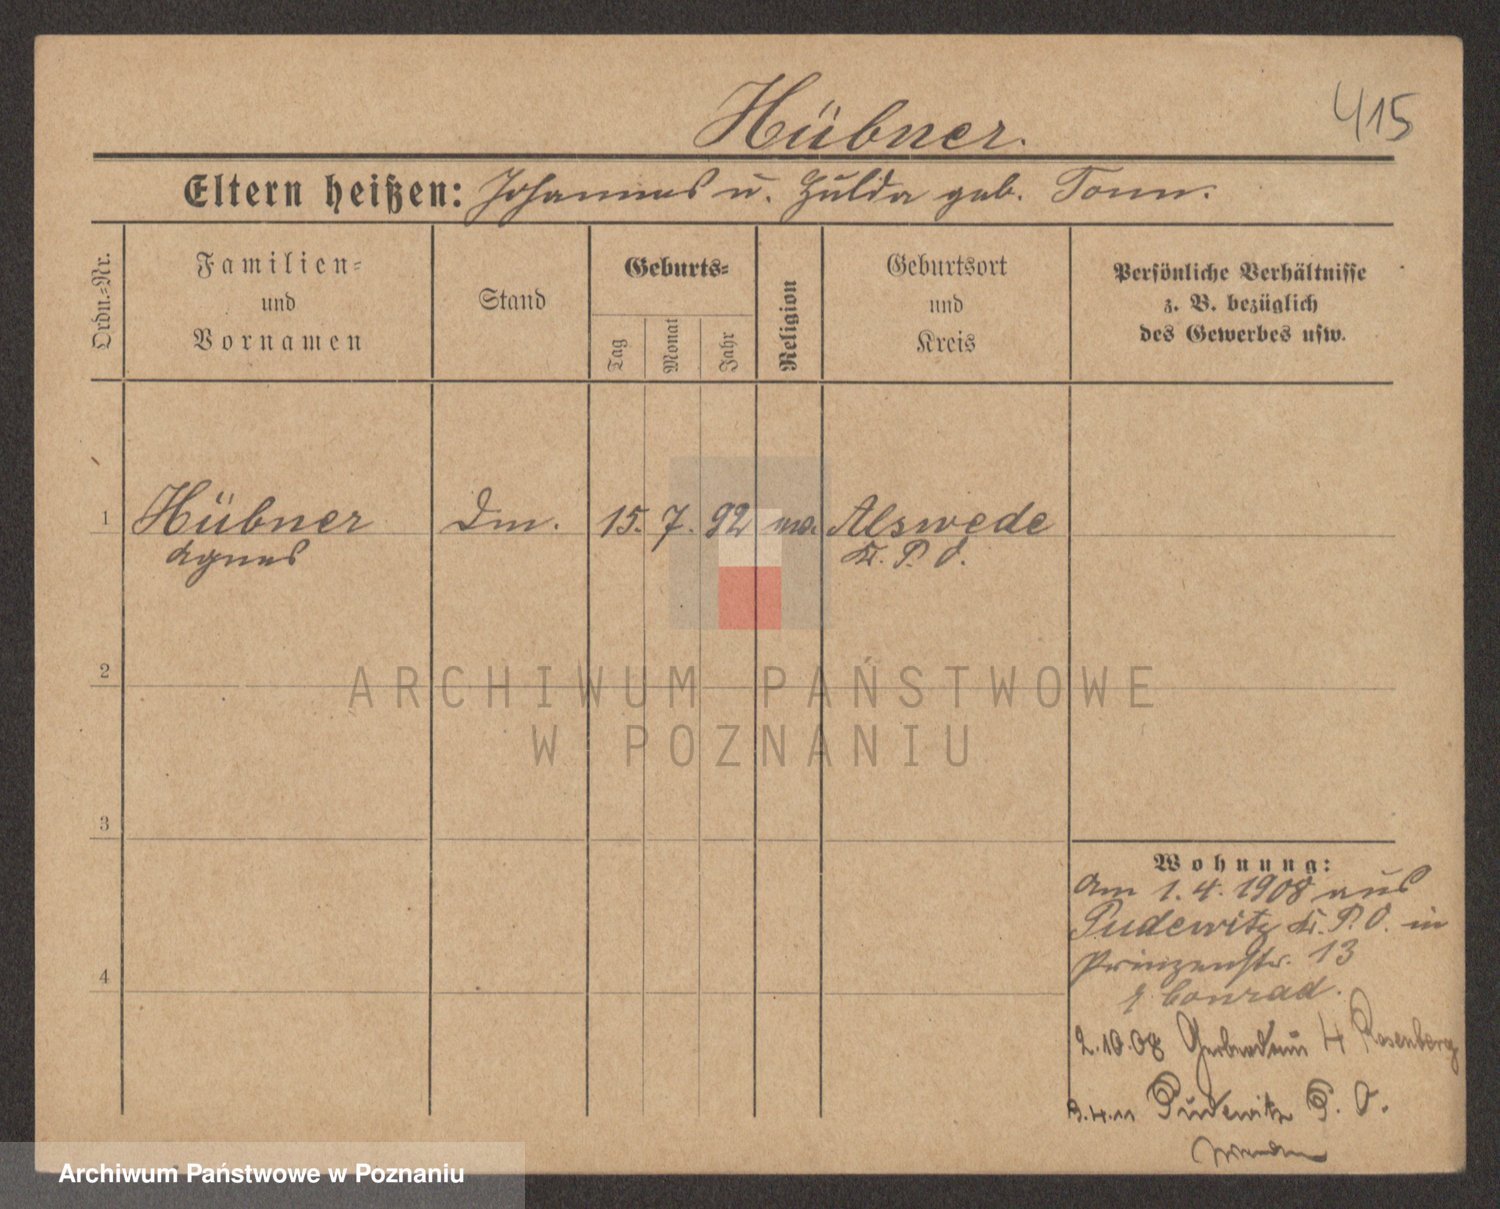 Hübner.
415
Eltern heißen: Johannes u. Hulda geb. Tonn.
Ordn.-Nr.
Familien-
und
Vornamen
Stand
Geburts-
Tag
Monat
Jahr
Religion
Geburtsort
und
Kreis
Persönliche Verhältnisse
z. B. bezüglich
des Gewerbes usw.
1 Hübner 15. 7. 92 Alswede
Agnes Kr. P. O.
2
3
4
Wohnung:
Am 1.4.1908 aus
Pudewitz Kr. P. O. in
Prinzenstr. 13
Conrad.
2.10.08 4 Rosenberg
3.4.11 Pudewitz P. O.
ARCHIWUM PAŃSTWOWE
W POZNANIU
Archiwum Państwowe w Poznaniu